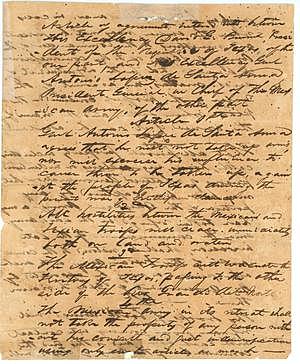 Articles
His Excellency David G. Burnet Presi
dent of the Republic of Texas of the
one part, and His Excellency Genl
Antonio Lopez de Santa Anna
President General in Chief of the Mex
ican Army, of the other part
Article 1st
Genl Antonio Lopez de Santa Anna
agrees that he will not take up arms
nor will exercise his influence to
cause them to be taken up again
st the people of Texas during the
present war
2
All hostilities between the Mexican and
Texan troops will cease immediately
both on land and water
3
The Mexican
Territory of Texas passing to the other
side of the Rio Grande
4
the Mexican Army in its retreat shall
not take the property of any person with
out his consent and just indemnification
using only such articles